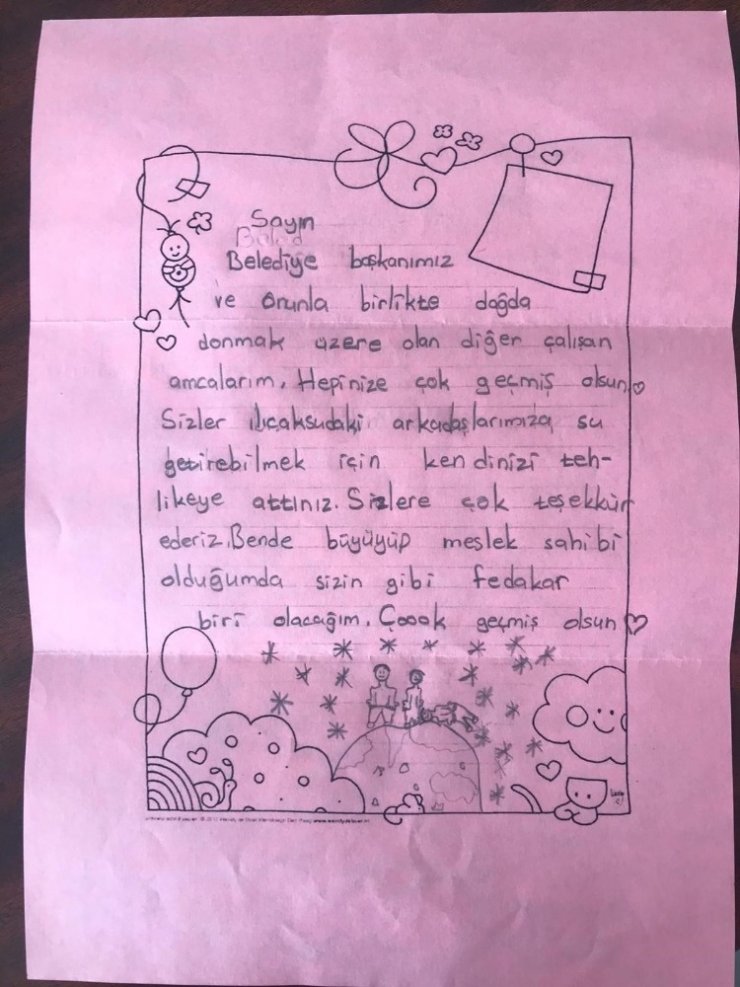 Sayın
Belediye başkanımız
ve Onunla birlikte dağda
donmak üzere olan diğer çalışan
amcalarım. Hepinize çok geçmiş olsun
Sizler ılıcaksudaki arkadaşlarımıza su
getirebilmek için kendinizi teh-
likeye attınız. Sizlere çok teşekkür
ederiz. Bende büyüyüp meslek sahibi
olduğumda sizin gibi fedakar
biri olacağım. Çoook geçmiş olsun